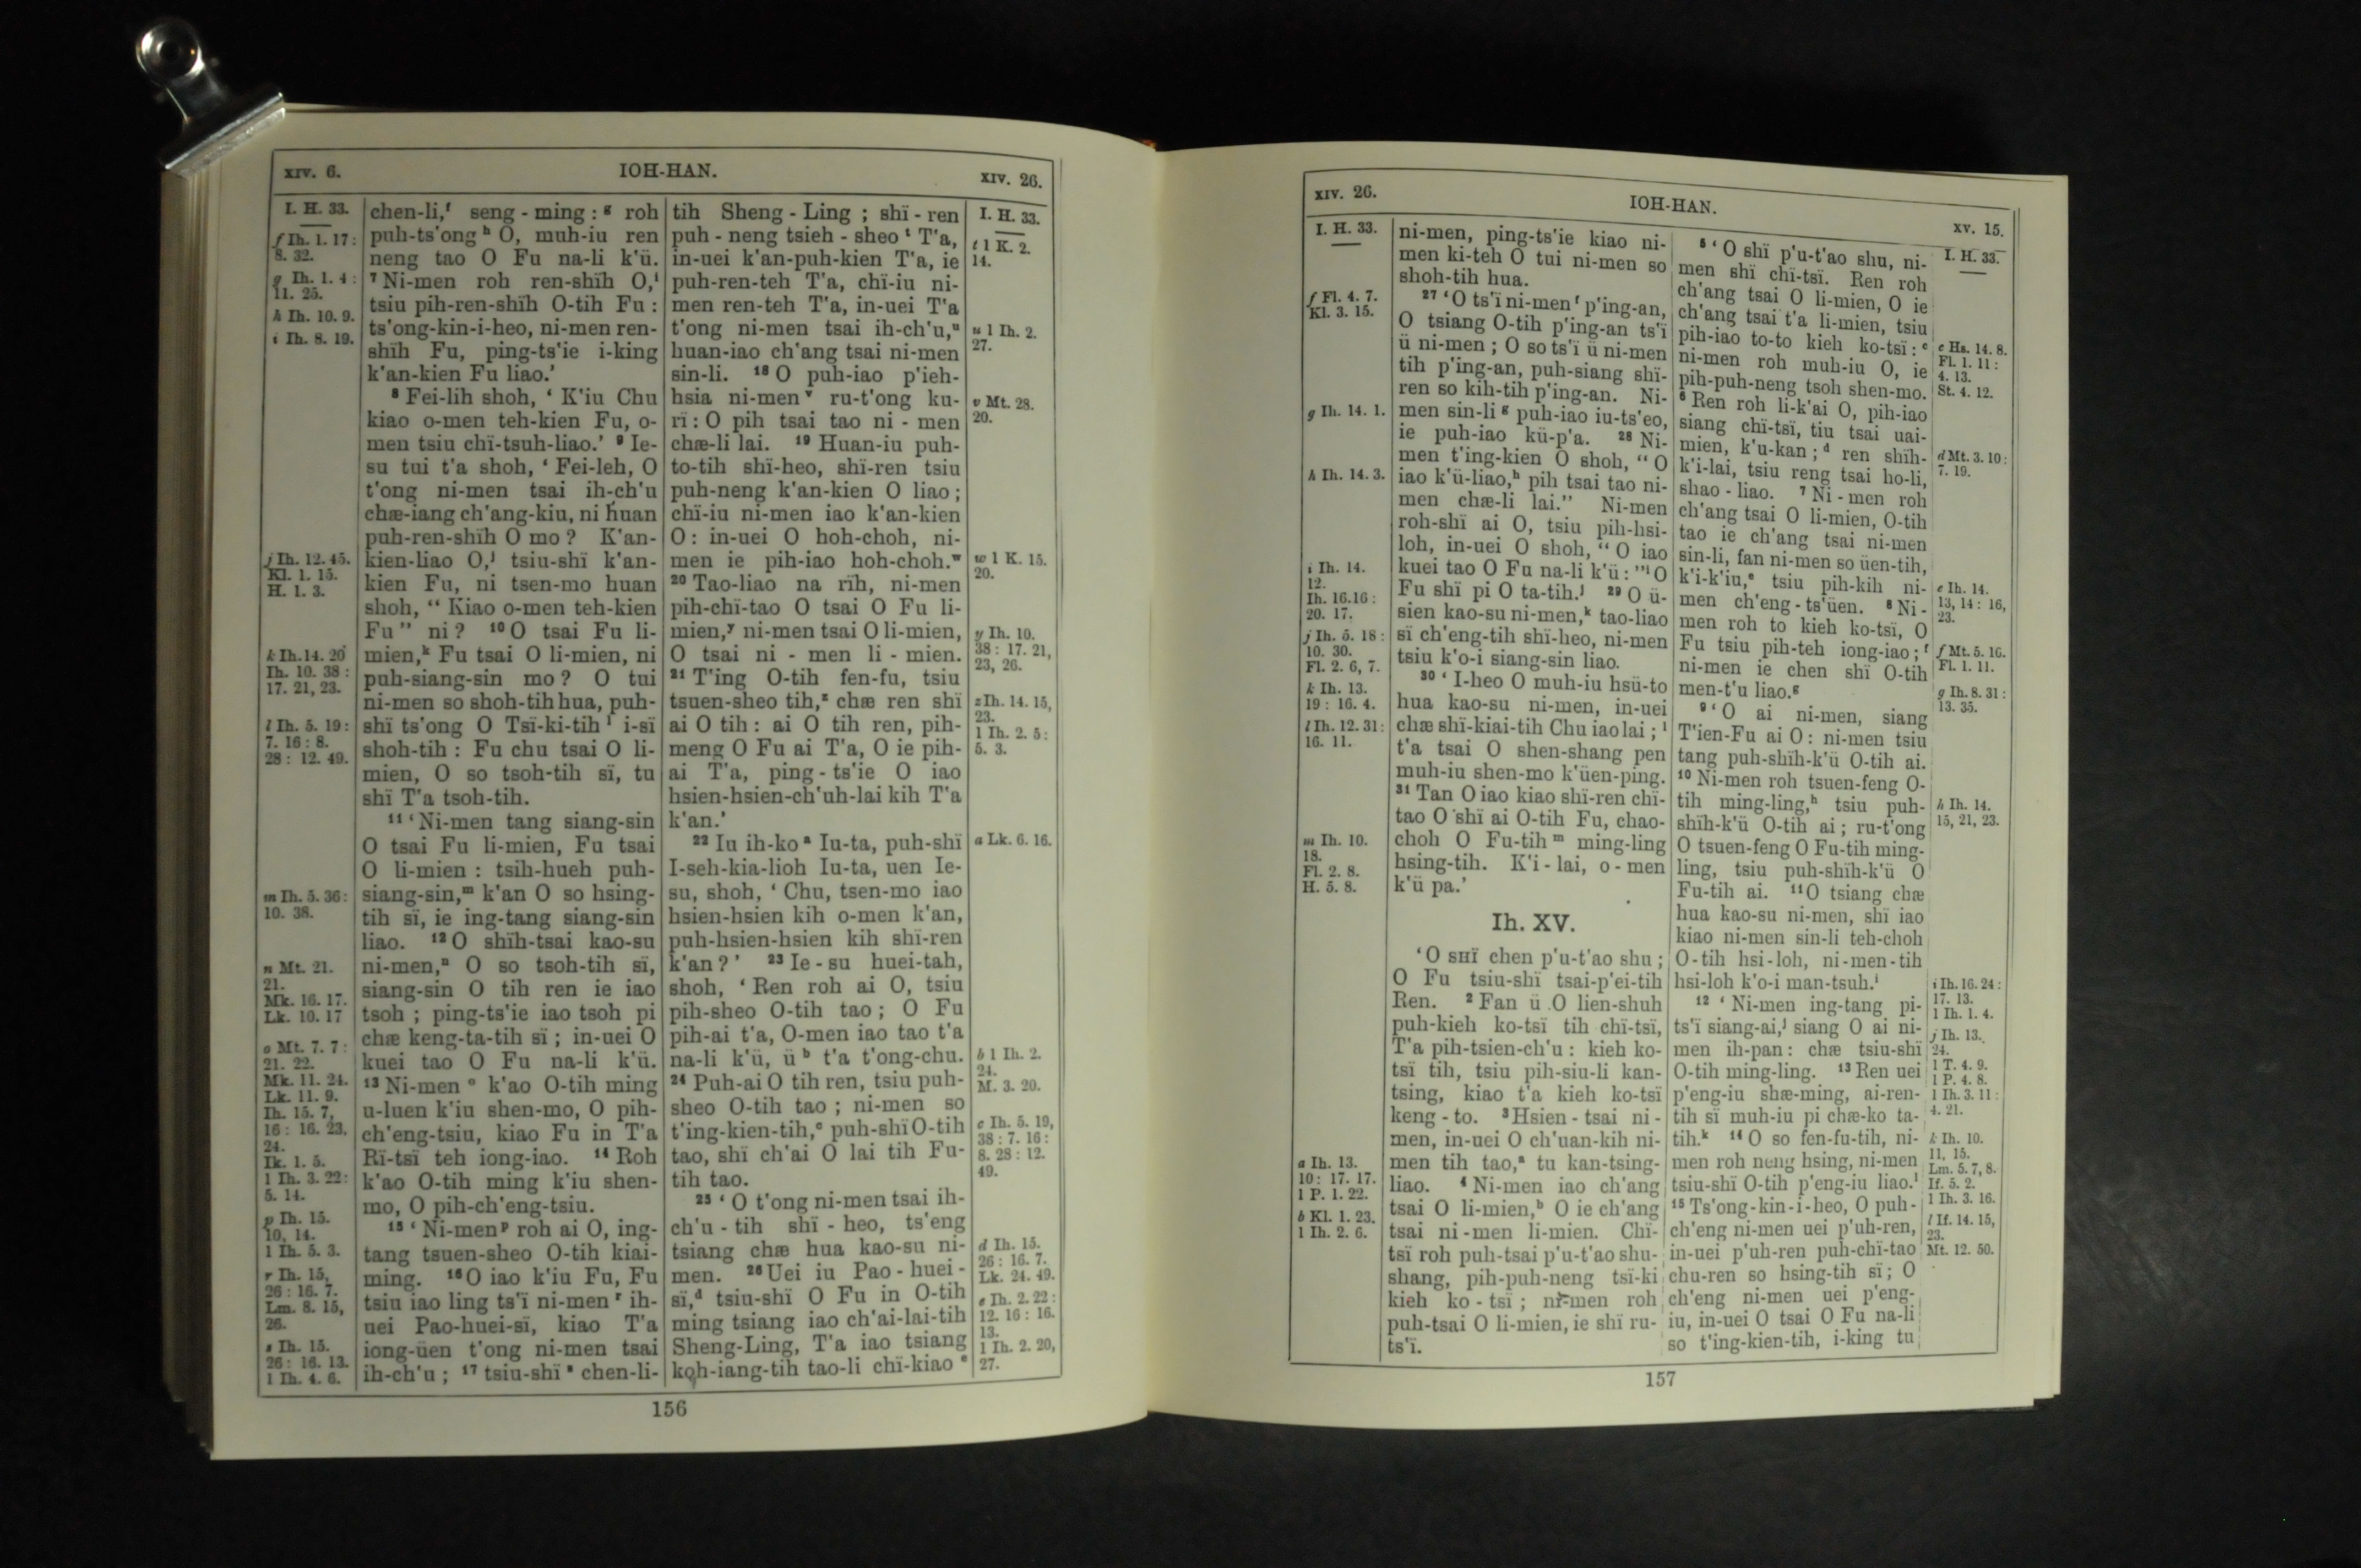 XIV. 6.
IOH-HAN.
XIV. 26.
I. H. 33.
f Ih. 1. 17:
8. 32.
g Ih. 1. 4:
11. 25.
h Ih. 10. 9.
i Ih. 8. 19.
j Ih. 12. 45.
Kl. 1. 15.
H. 1. 3.
k Ih. 14. 20
Ih. 10. 38:
17. 21, 23.
l Ih. 5. 19:
7. 16: 8.
28: 12. 49.
m Ih. 5. 36:
10. 38.
n Mt. 21.
21.
Mk. 16. 17.
Lk. 10. 17
o Mt. 7. 7:
21. 22.
Mk. 11. 24.
Lk. 11. 9.
Ih. 15. 7,
16: 16. 23,
24.
Ik. 1. 5.
1 Ih. 3. 22:
5. 14.
p Ih. 15.
10, 14.
1 Ih. 5. 3.
r Ih. 15,
26: 16. 7.
Lm. 8. 15,
26.
s Ih. 15.
26: 16. 13.
1 Ih. 4. 6.
chen-li,f seng-ming:g roh
puh-ts'ongh O, muh-iu ren
neng tao O Fu na-li k'ü.
7 Ni-men roh ren-shïh O,i
tsiu pih-ren-shïh O-tih Fu:
ts'ong-kin-i-heo, ni-men ren-
shïh Fu, ping-ts'ie i-king
k'an-kien Fu liao.'
8 Fei-lih shoh, ‘ K'iu Chu
kiao o-men teh-kien Fu, o-
men tsiu chï-tsuh-liao.' 9 Ie-
su tui t'a shoh, ‘ Fei-leh, O
t'ong ni-men tsai ih-ch'u
chæ-iang ch'ang-kiu, ni huan
puh-ren-shïh O mo? K'an-
kien-liao O,j tsiu-shï k'an-
kien Fu, ni tsen-mo huan
shoh, “ Kiao o-men teh-kien
Fu” ni? 10 O tsai Fu li-
mien,k Fu tsai O li-mien, ni
puh-siang-sin mo? O tui
ni-men so shoh-tih hua, puh-
shï ts'ong O Tsï-ki-tih l i-sï
shoh-tih: Fu chu tsai O li-
mien, O so tsoh-tih sï, tu
shï T'a tsoh-tih.
11 ‘Ni-men tang siang-sin
O tsai Fu li-mien, Fu tsai
O li-mien: tsih-hueh puh-
siang-sin,m k'an O so hsing-
tih sï, ie ing-tang siang-sin
liao. 12 O shïh-tsai kao-su
ni-men,n O so tsoh-tih sï,
siang-sin O tih ren ie iao
tsoh; ping-ts'ie iao tsoh pi
chæ keng-ta-tih sï; in-uei O
kuei tao O Fu na-li k'ü.
13 Ni-men o k'ao O-tih ming
u-luen k'iu shen-mo, O pih-
ch'eng-tsiu, kiao Fu in T'a
Rï-tsï teh iong-iao. 14 Roh
k'ao O-tih ming k'iu shen-
mo, O pih-ch'eng-tsiu.
15 ‘ Ni-men p roh ai O, ing-
tang tsuen-sheo O-tih kiai-
ming. 16 O iao k'iu Fu, Fu
tsiu iao ling ts'ï ni-men r ih-
uei Pao-huei-sï, kiao T'a
iong-üen t'ong ni-men tsai
ih-ch'u; 17 tsiu-shï s chen-li-
tih Sheng-Ling; shï-ren
puh-neng tsieh-sheo t T'a,
in-uei k'an-puh-kien T'a, ie
puh-ren-teh T'a, chï-iu ni-
men ren-teh T'a, in-uei T'a
t'ong ni-men tsai ih-ch'u,u
huan-iao ch'ang tsai ni-men
sin-li. 18 O puh-iao p'ieh-
hsia ni-men v ru-t'ong ku-
rï: O pih tsai tao ni-men
chæ-li lai. 19 Huan-iu puh-
to-tih shï-heo, shï-ren tsiu
puh-neng k'an-kien O liao;
chï-iu ni-men iao k'an-kien
O: in-uei O hoh-choh, ni-
men ie pih-iao hoh-choh.w
20 Tao-liao na rïh, ni-men
pih-chï-tao O tsai O Fu li-
mien,y ni-men tsai O li-mien,
O tsai ni-men li-mien.
21 T'ing O-tih fen-fu, tsiu
tsuen-sheo tih,z chæ ren shï
ai O tih: ai O tih ren, pih-
meng O Fu ai T'a, O ie pih-
ai T'a, ping-ts'ie O iao
hsien-hsien-ch'uh-lai kih T'a
k'an.'
22 Iu ih-ko a Iu-ta, puh-shï
I-seh-kia-lioh Iu-ta, uen Ie-
su, shoh, ‘ Chu, tsen-mo iao
hsien-hsien kih o-men k'an,
puh-hsien-hsien kih shï-ren
k'an?' 23 Ie-su huei-tah,
shoh, ‘ Ren roh ai O, tsiu
pih-sheo O-tih tao; O Fu
pih-ai t'a, O-men iao tao t'a
na-li k'ü, ü b t'a t'ong-chu.
24 Puh-ai O tih ren, tsiu puh-
sheo O-tih tao; ni-men so
t'ing-kien-tih,c puh-shï O-tih
tao, shï ch'ai O lai tih Fu-
tih tao.
25 ‘ O t'ong ni-men tsai ih-
ch'u-tih shï-heo, ts'eng
tsiang chæ hua kao-su ni-
men. 26 Uei iu Pao-huei-
sï,d tsiu-shï O Fu in O-tih
ming tsiang iao ch'ai-lai-tih
Sheng-Ling, T'a iao tsiang
koh-iang-tih tao-li chï-kiao e
I. H. 33.
t 1 K. 2.
14.
u 1 Ih. 2.
27.
v Mt. 28.
20.
w 1 K. 15.
20.
y Ih. 10.
38: 17. 21,
23, 26.
z Ih. 14. 15,
23.
1 Ih. 2. 5:
5. 3.
a Lk. 6. 16.
b 1 Ih. 2.
24.
M. 3. 20.
c Ih. 5. 19,
38: 7. 16:
8. 28: 12.
49.
d Ih. 15.
26: 16. 7.
Lk. 24. 49.
e Ih. 2. 22:
12. 16: 16.
13.
1 Ih. 2. 20,
27.
156
XIV. 26.
IOH-HAN.
XV. 15.
I. H. 33.
f Fl. 4. 7.
Kl. 3. 15.
g Ih. 14. 1.
h Ih. 14. 3.
i Ih. 14.
12.
Ih. 16.16:
20. 17.
j Ih. 5. 18:
10. 30.
Fl. 2. 6, 7.
k Ih. 13.
19: 16. 4.
l Ih. 12. 31:
16. 11.
m Ih. 10.
18.
Fl. 2. 8.
H. 5. 8.
a Ih. 13.
10: 17. 17.
1 P. 1. 22.
b Kl. 1. 23.
1 Ih. 2. 6.
ni-men, ping-ts'ie kiao ni-
men ki-teh O tui ni-men so
shoh-tih hua.
27 ‘O ts'ï ni-men f p'ing-an,
O tsiang O-tih p'ing-an ts'ï
ü ni-men; O so ts'ï ü ni-men
tih p'ing-an, puh-siang shï-
ren so kih-tih p'ing-an. Ni-
men sin-li g puh-iao iu-ts'eo,
ie puh-iao kü-p'a. 28 Ni-
men t'ing-kien O shoh, “ O
iao k'ü-liao,h pih tsai tao ni-
men chæ-li lai.” Ni-men
roh-shï ai O, tsiu pih-hsi-
loh, in-uei O shoh, “ O iao
kuei tao O Fu na-li k'ü:”i O
Fu shï pi O ta-tih.j 29 O ü-
sien kao-su ni-men,k tao-liao
sï ch'eng-tih shï-heo, ni-men
tsiu k'o-i siang-sin liao.
30 ‘ I-heo O muh-iu hsü-to
hua kao-su ni-men, in-uei
chæ shï-kiai-tih Chu iao lai;l
t'a tsai O shen-shang pen
muh-iu shen-mo k'üen-ping.
31 Tan O iao kiao shï-ren chï-
tao O shï ai O-tih Fu, chao-
choh O Fu-tih m ming-ling
hsing-tih. K'i-lai, o-men
k'ü pa.'
Ih. XV.
‘O SHÏ chen p'u-t'ao shu;
O Fu tsiu-shï tsai-p'ei-tih
Ren. 2 Fan ü O lien-shuh
puh-kieh ko-tsï tih chï-tsï,
T'a pih-tsien-ch'u: kieh ko-
tsï tih, tsiu pih-siu-li kan-
tsing, kiao t'a kieh ko-tsï
keng-to. 3 Hsien-tsai ni-
men, in-uei O ch'uan-kih ni-
men tih tao,a tu kan-tsing-
liao. 4 Ni-men iao ch'ang
tsai O li-mien,b O ie ch'ang
tsai ni-men li-mien. Chï-
tsï roh puh-tsai p'u-t'ao shu-
shang, pih-puh-neng tsï-ki
kieh ko-tsï; ni-men roh
puh-tsai O li-mien, ie shï ru-
ts'ï.
5 ‘ O shï p'u-t'ao shu, ni-
men shï chï-tsï. Ren roh
ch'ang tsai O li-mien, O ie
ch'ang tsai t'a li-mien, tsiu
pih-iao to-to kieh ko-tsï:c
ni-men roh muh-iu O, ie
pih-puh-neng tsoh shen-mo.
6 Ren roh li-k'ai O, pih-iao
siang chï-tsï, tiu tsai uai-
mien, k'u-kan;d ren shïh-
k'i-lai, tsiu reng tsai ho-li,
shao-liao. 7 Ni-men roh
ch'ang tsai O li-mien, O-tih
tao ie ch'ang tsai ni-men
sin-li, fan ni-men so üen-tih,
k'i-k'iu,e tsiu pih-kih ni-
men ch'eng-ts'üen. 8 Ni-
men roh to kieh ko-tsï, O
Fu tsiu pih-teh iong-iao;f
ni-men ie chen shï O-tih
men-t'u liao.g
9 ‘O ai ni-men, siang
T'ien-Fu ai O: ni-men tsiu
tang puh-shïh-k'ü O-tih ai.
10 Ni-men roh tsuen-feng O-
tih ming-ling,h tsiu puh-
shïh-k'ü O-tih ai; ru-t'ong
O tsuen-feng O Fu-tih ming-
ling, tsiu puh-shïh-k'ü O
Fu-tih ai. 11 O tsiang chæ
hua kao-su ni-men, shï iao
kiao ni-men sin-li teh-choh
O-tih hsi-loh, ni-men-tih
hsi-loh k'o-i man-tsuh.i
12 ‘ Ni-men ing-tang pi-
ts'ï siang-ai,j siang O ai ni-
men ih-pan: chæ tsiu-shï
O-tih ming-ling. 13 Ren uei
p'eng-iu shæ-ming, ai-ren-
tih sï muh-iu pi chæ-ko ta-
tih.k 14 O so fen-fu-tih, ni-
men roh neng hsing, ni-men
tsiu-shï O-tih p'eng-iu liao.l
15 Ts'ong-kin-i-heo, O puh-
ch'eng ni-men uei p'uh-ren,
in-uei p'uh-ren puh-chï-tao
chu-ren so hsing-tih sï; O
ch'eng ni-men uei p'eng-
iu, in-uei O tsai O Fu na-li
so t'ing-kien-tih, i-king tu
I. H. 33.
c Hs. 14. 8.
Fl. 1. 11:
4. 13.
St. 4. 12.
d Mt. 3. 10:
7. 19.
e Ih. 14.
13, 14: 16,
23.
f Mt. 5. 16.
Fl. 1. 11.
g Ih. 8. 31:
13. 35.
h Ih. 14.
15, 21, 23.
i Ih. 16. 24:
17. 13.
1 Ih. 1. 4.
j Ih. 13.
24.
1 T. 4. 9.
1 P. 4. 8.
1 Ih. 3. 11:
4. 21.
k Ih. 10.
11, 15.
Lm. 5. 7, 8.
If. 5. 2.
1 Ih. 3. 16.
l If. 14. 15,
23.
Mt. 12. 50.
157